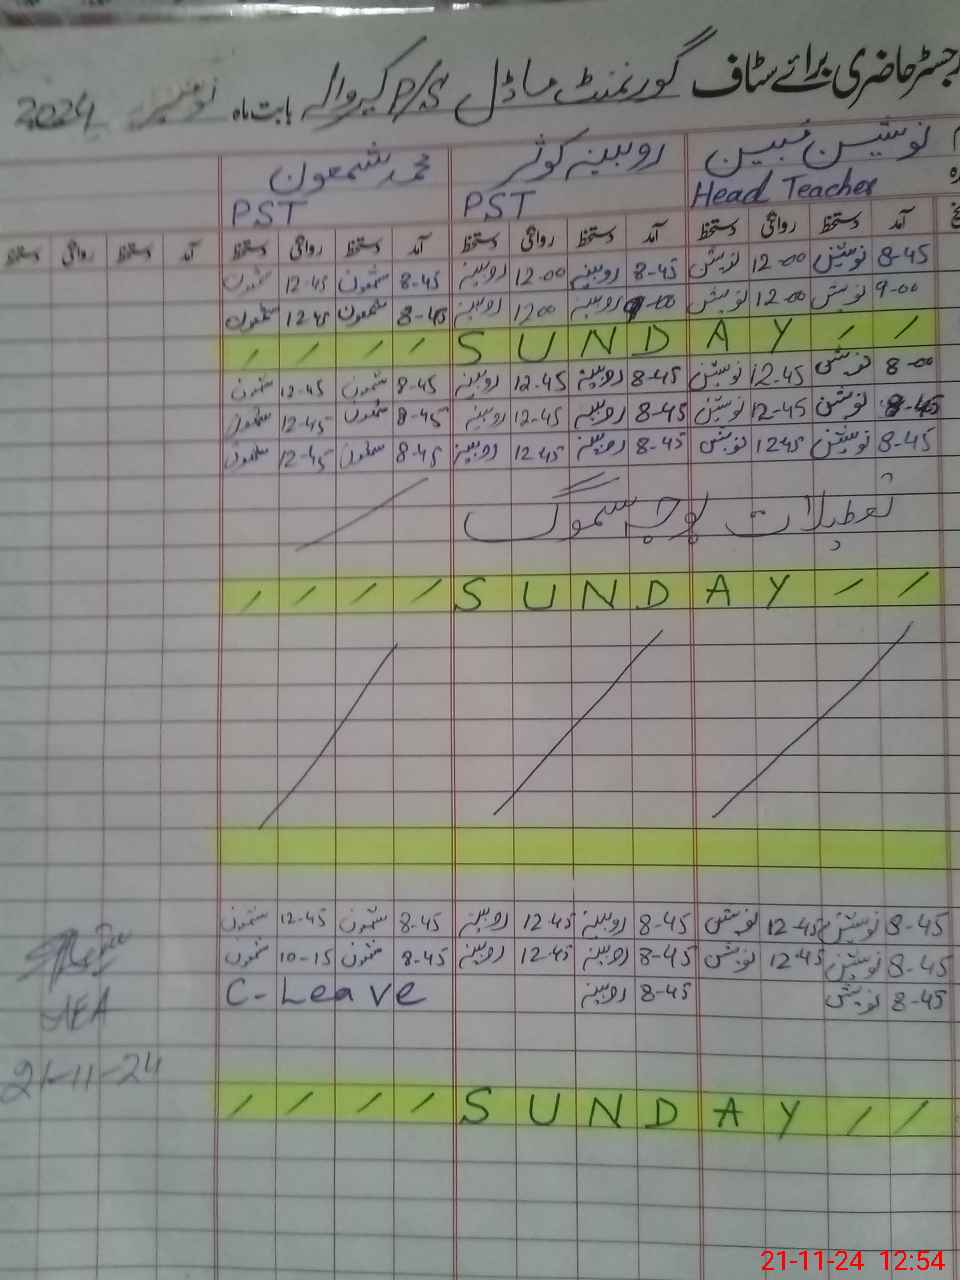 رجسٹر حاضری برائے سٹاف گورنمنٹ ماڈل P/S کیروالے بابت ماہ نومبر 2024
نوشین مبین روبینہ کوثر محمد شمعون
Head Teacher PST PST
آمد دستخط روانگی دستخط آمد دستخط روانگی دستخط آمد دستخط روانگی دستخط آمد دستخط روانگی دستخط
8-45 نوشین 12-00 نوشین 8-45 روبینہ 12-00 روبینہ 8-45 شمعون 12-45 شمعون
9-00 نوشین 12-00 نوشین 9-00 روبینہ 1200 روبینہ 8-45 شمعون 12-45 شمعون
/ / / / S U N D A Y / /
8-00 نوشین 12-45 نوشین 8-45 روبینہ 12-45 روبینہ 8-45 شمعون 12-45 شمعون
8-45 نوشین 12-45 نوشین 8-45 روبینہ 12-45 روبینہ 8-45 شمعون 12-45 شمعون
8-45 نوشین 1245 نوشین 8-45 روبینہ 12-45 روبینہ 8-45 شمعون 12-45 شمعون
تعطیلات بوجہ سموگ
/ / / / S U N D A Y / /
8-45 نوشین 12-45 نوشین 8-45 روبینہ 12-45 روبینہ 8-45 شمعون 12-45 شمعون
8-45 نوشین 12-45 نوشین 8-45 روبینہ 12-45 روبینہ 8-45 شمعون 10-15 شمعون
8-45 نوشین 8-45 روبینہ C-Leave
AEA
21-11-24
/ / / / S U N D A Y / /
21-11-24 12:54